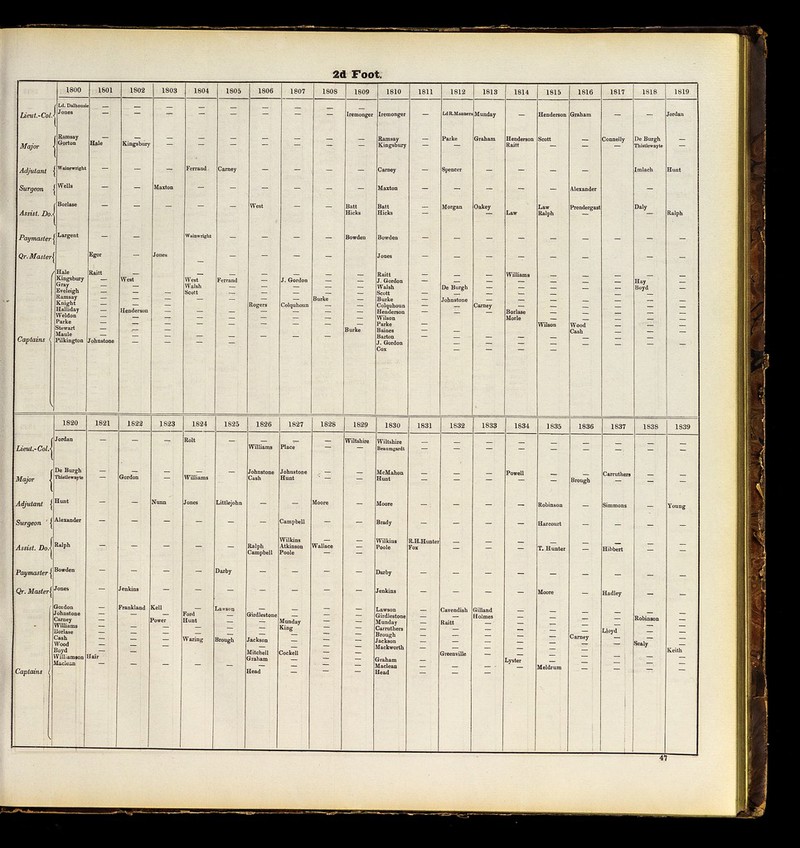 2d Foot.
1800 1801 1802 1803 1804 1805 1806 1807 1808 1809 1810 1811 1812 1813 1814 1815 1816 1817 1818 1819
Lieut.-Col.
Ld. Dalhousie — — — — — — — — —
Jones — — — — — — — — Iremonger Iremonger — Ld R. Manners Munday — Henderson Graham — — Jordan
Major
Ramsay — — — — — — — — — Ramsay — Parke Graham Henderson Scott — Connolly De Burgh —
Gorton Hale Kingsbury — — — — — — — Kingsbury — — — Raitt — — — Thistlewayte —
Adjutant Wainwright — — — Ferraud Carney — — — — Carney — Spencer — — — — — Imlach Hunt
Surgeon Wells — — Maxton — — — — — — Maxton — — — — — Alexander
Assist. Do.
Borlase — — — — — West — — Batt Batt — Morgan Oakey — Law Prendergast — Daly
Hicks Hicks — — Law Ralph — — Ralph
Paymaster Largent — — — Wainwright — — — — Bowden Bowden — — — — — — — — —
Qr. Master Egor — Jones — — — — — — Jones — — — — — — — — —
Captains
Hale Raitt — — — — — — — — Raitt — — — Williams — — — — —
Kingsbury — West — West Ferraud — J. Gordon — — J. Gordon — — — — — — — Hay —
Gray — — — Walsh — — — — — Walsh — De Burgh — — — — — Boyd —
Eveleigh — — — Scott — — — — — Scott — — — — — — — — —
Ramsay — — — — — — — Burke — Burke — Johnstone — — — — — — —
Knight — — — — — Rogers Colquhoun — — Colquhoun — — Carney — — — — — —
Halliday — Henderson — — — — — — — Henderson — — — Borlase — — — — —
Weldon — — — — — — — — — Wilson — — — Morle — — — — —
Parke — — — — — — — — — Parke — — — — Wilson Wood — — —
Stewart — — — — — — — — Burke Baines — — — — — Cash — — —
Maule — — — — — — — — — Barton — — — — — — — — —
Pilkington Johnstone — — — — J. Gordon — — — — —
Cox — — — —
1820 1821 1822 1823 1824 1825 1826 1827 1828 1829 1830 1831 1832 1833 1834 1835 1836 1837 1838 1839
Lieut.-Col.
Jordan — — — Rolt — — — — Wiltshire Wiltshire — — — — — — — — —
Williams Place — — Beaumgardt — — — — — — — — —
Major
De Burgh — — — — — Johnstone Johnstone — — McMahon — — — Powell — — Carruthers — —
Thistlewayte — Gordon — Williams — Cash Hunt — — Hunt — — — — — Brough — — —
Adjutant Hunt — — Nunn Jones Littlejohn — — Moore — Moore — — — — Robinson — Simmons — Young
Surgeon Alexander — — — — — — Campbell — — Brady — — — — Harcourt — — — —
Assist. Do.
Wilkins — — Wilkins R.H. Hunter — — — — — — — —
Ralph — — — — — Ralph Atkinson Wallace — Poole Fox — — — T. Hunter — Hibbert — —
Campbell Poole —
Paymaster Bowden — — — — Darby — — — — Darby — — — — — — — — —
Qr. Master Jones — Jenkins — — — — — — — Jenkins — — — — Moore — Hadley — —
Captains
Gordon — Frankland Kell — Lawson — — — — Lawson — Cavendish Gilland — — — — — —
Johnstone — — — Ford — Girdlestone — — — Girdlestone — — Holmes — — — — Robinson —
Carney — — Power Hunt — — Munday — — Munday — Raitt — — — — — — —
Williams — — — — — — King — — Carruthers — — — — — — Lloyd — —
Borlase — — — — — — — — — Brough — — — — — — — — —
Cash — — — Waring Brough Jackson — — — Jackson — — — — — Carney — — —
Wood — — — — — — — — — Mackworth — — — — — — — Sealy —
Boyd — — Mitchell Cockell — — Greenville — — — — — — Keith
Williamson Hair — — — — Graham — — — Graham — — — Lyster — — — — —
Maclean — — — — — — — — — Maclean — — — — Meldrum — — — —
Head — — — Head — — —
47